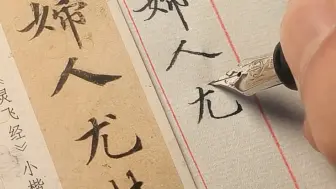 婦人尤
婦人尤
《灵飞经》小楷